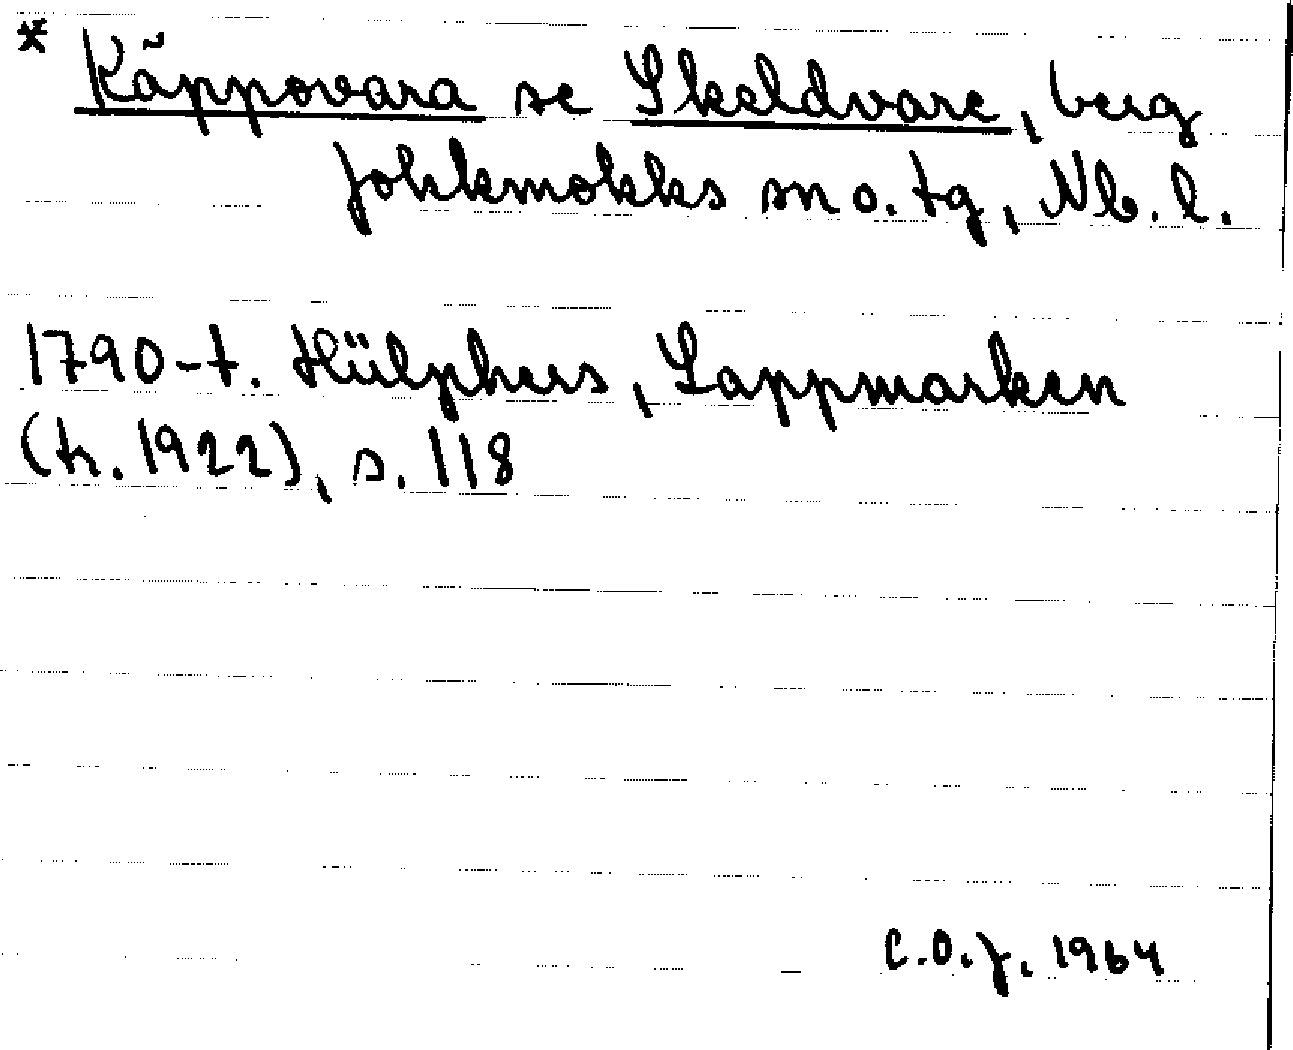 * Käppovara se Skeldvare, berg
Johkmokks sn o. tg, Nb. l.
1790-t. Hülphers, Lappmarken
(tr. 1922), s. 118
C.O.J. 1964